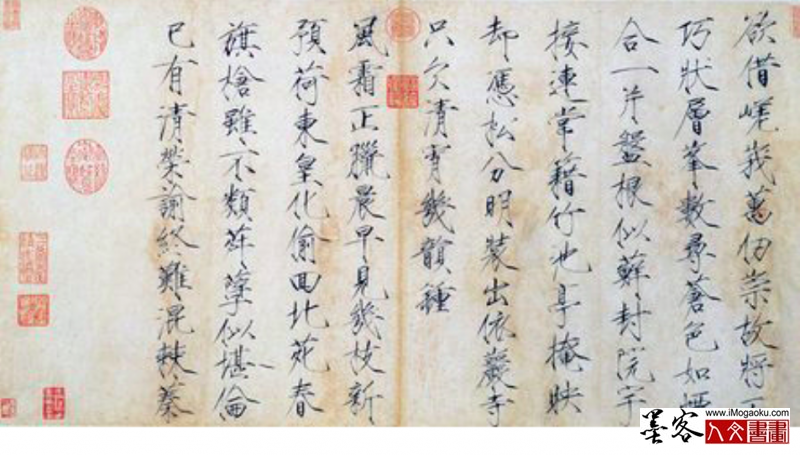 欲借嶢峩萬仞崇故將
巧狀層峯數尋蒼色如煙
合一片盤根似蘚封院宇
接連常籍竹池亭掩映
却憑松分明裝出依巖寺
只欠清宵幾韻鍾
風霜正臘晨早見幾枝新
預荷東皇化偷回北苑春
旗槍雖不類荈孽似堪倫
已有清榮諭終難混棘蓁
墨客
www.iMogaoku.com
人文書畫